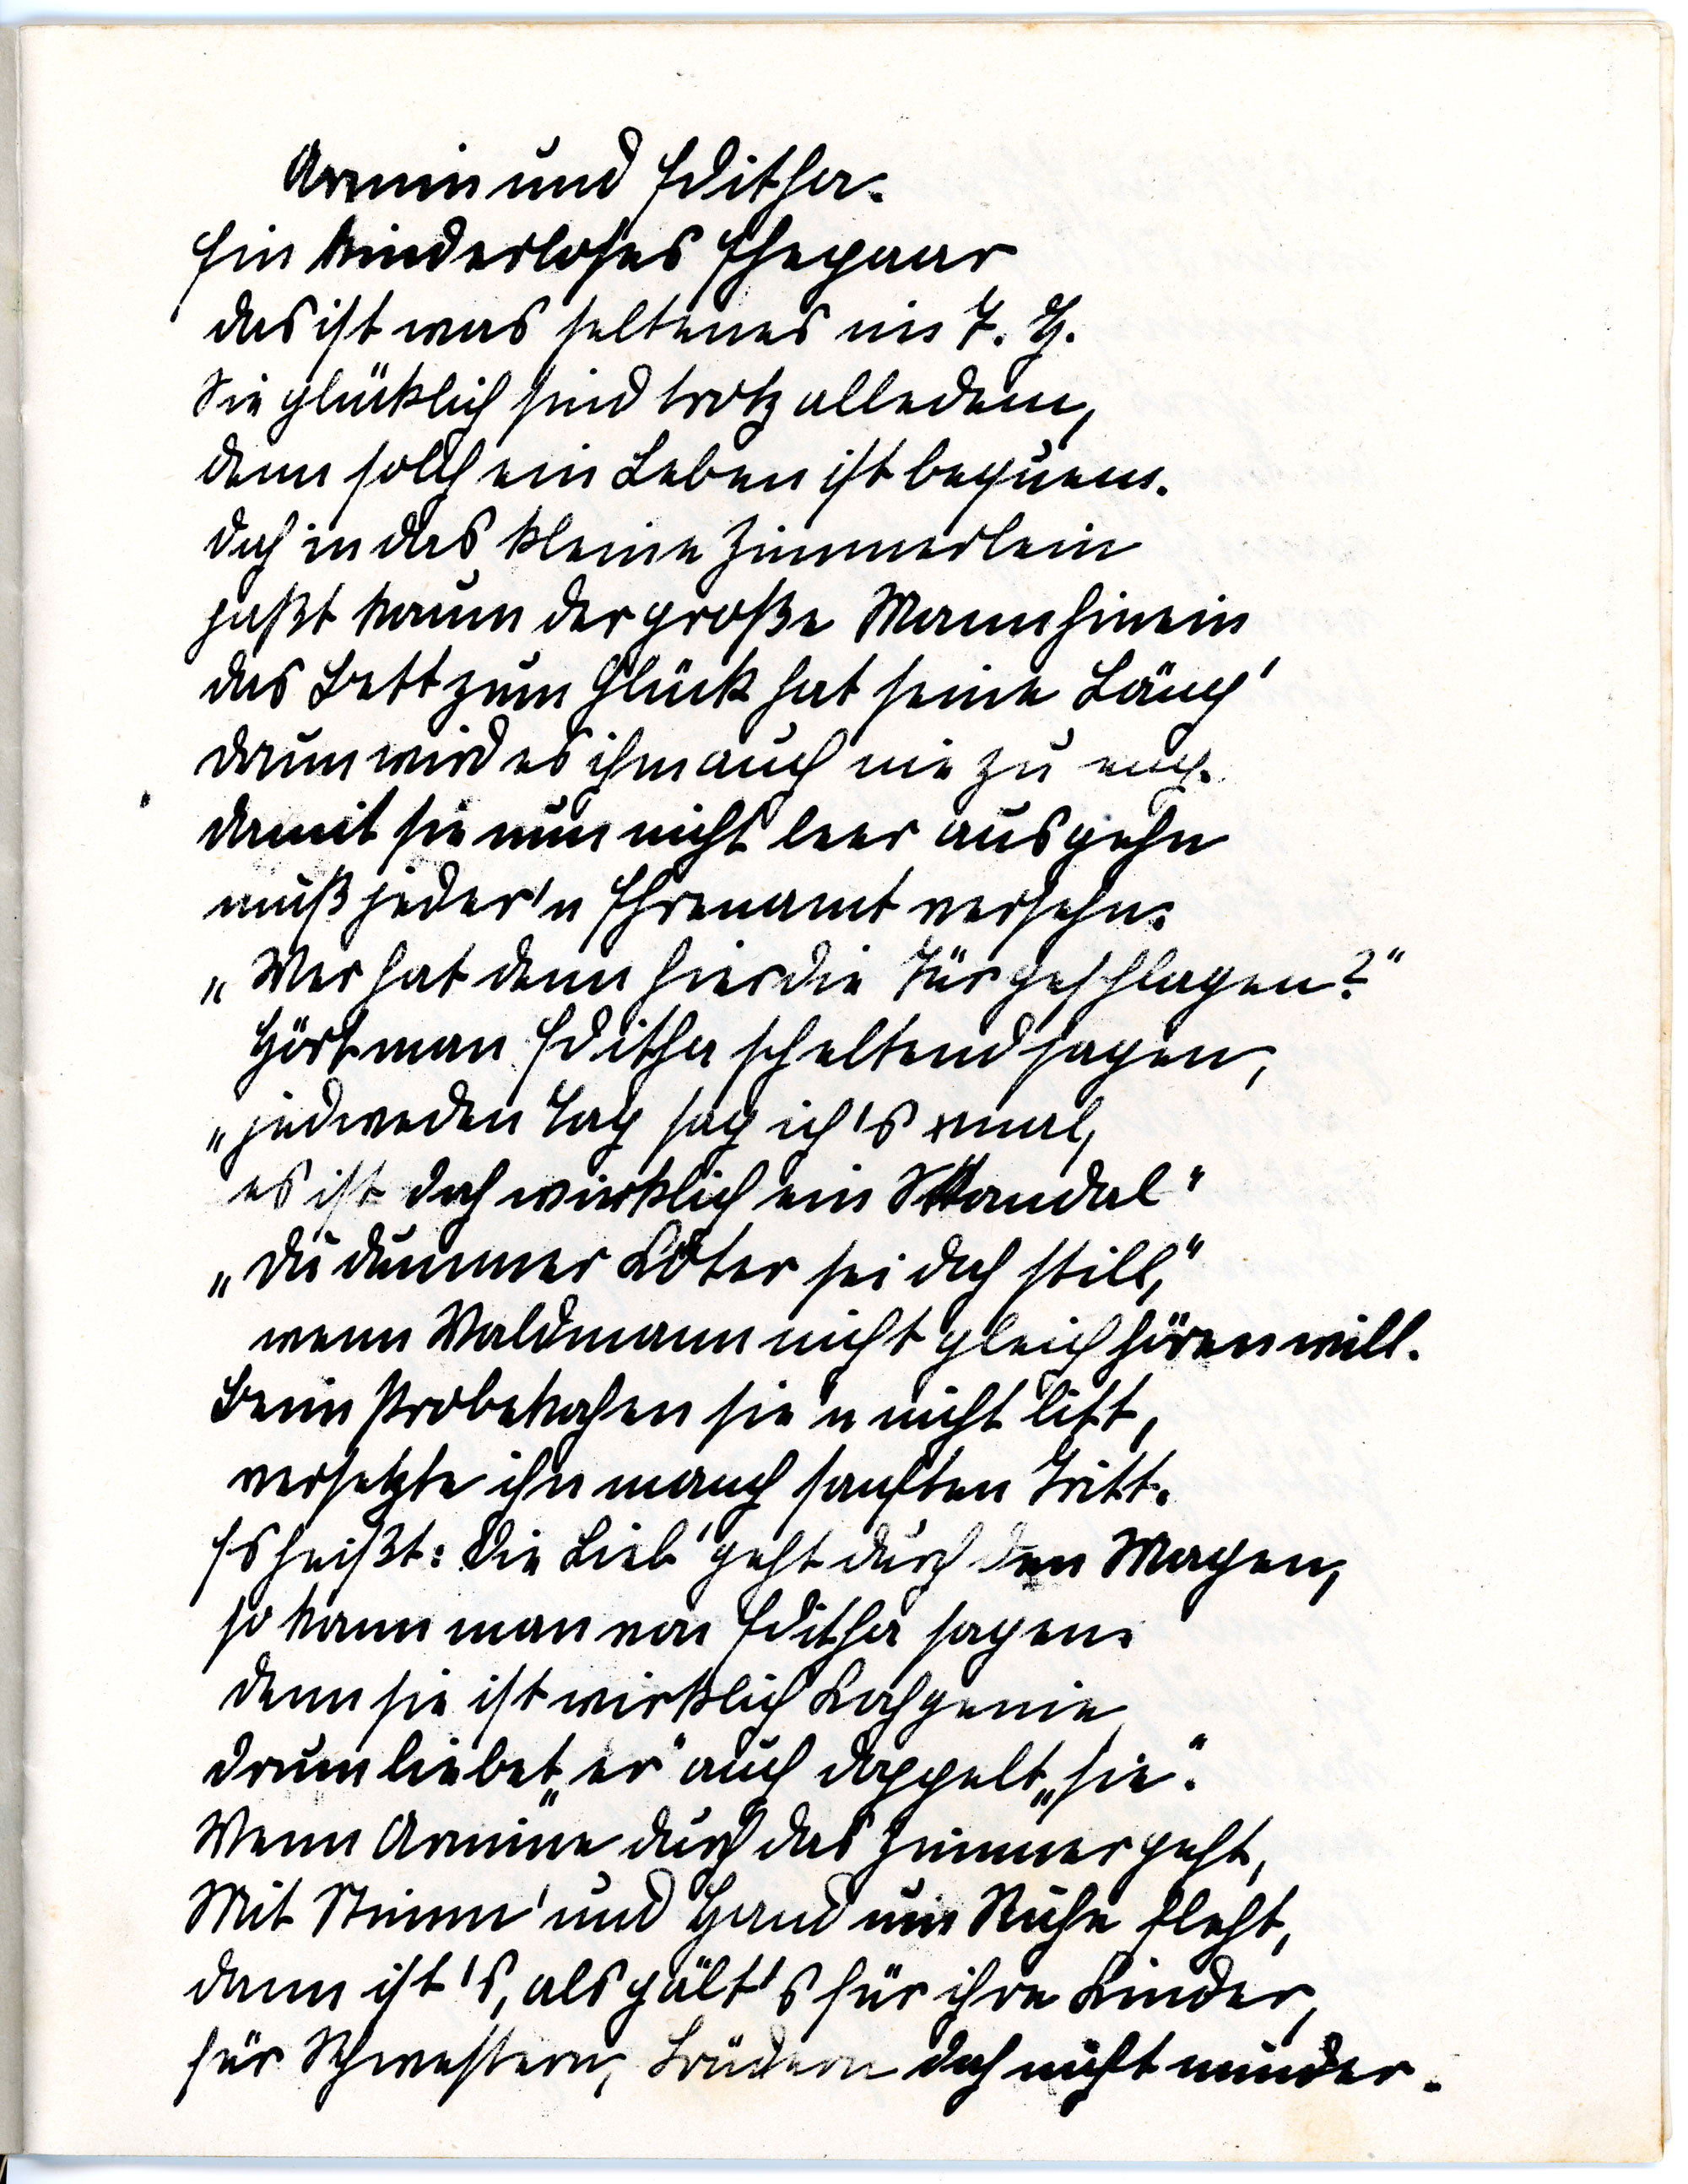 Armin und Editha.
Ein kinderloses Ehepaar
das ist was seltenes im F. H.
Sie glücklich sind trotz alledem,
denn solch ein Leben ist bequem.
doch in das kleine Zimmerlein
paßt kaum der große Mann hinein
das Bett zum Glück hat seine Läng'
drum wird es ihm auch nie zu eng.
damit sie nun nicht leer ausgehn
muß jeder 'n Ehrenamt versehn.
„Wer hat denn hier die Tür geschlagen?"
Hört man Editha scheltend sagen,
„jedweden Tag sag ich's xmal,
es ist doch wirklich ein Skandal"
„Du dummer Köter sei doch still,"
wenn Waldmann nicht gleich hören will.
Beim Probekochen sie 'n nicht litt,
versetzte ihn manch sanften Tritt.
Es heißt: Die Lieb' geht durch den Magen,
so kann man von Editha sagen.
denn sie ist wirklich Kochgenie
drum liebet „er" auch doppelt „sie".
Wenn Armine durch das Zimmer geht,
Mit Stimm' und Hand um Ruhe fleht,
dann ist's, als gält's für ihre Kinder,
für Schwestern, Brüdern doch nicht minder.